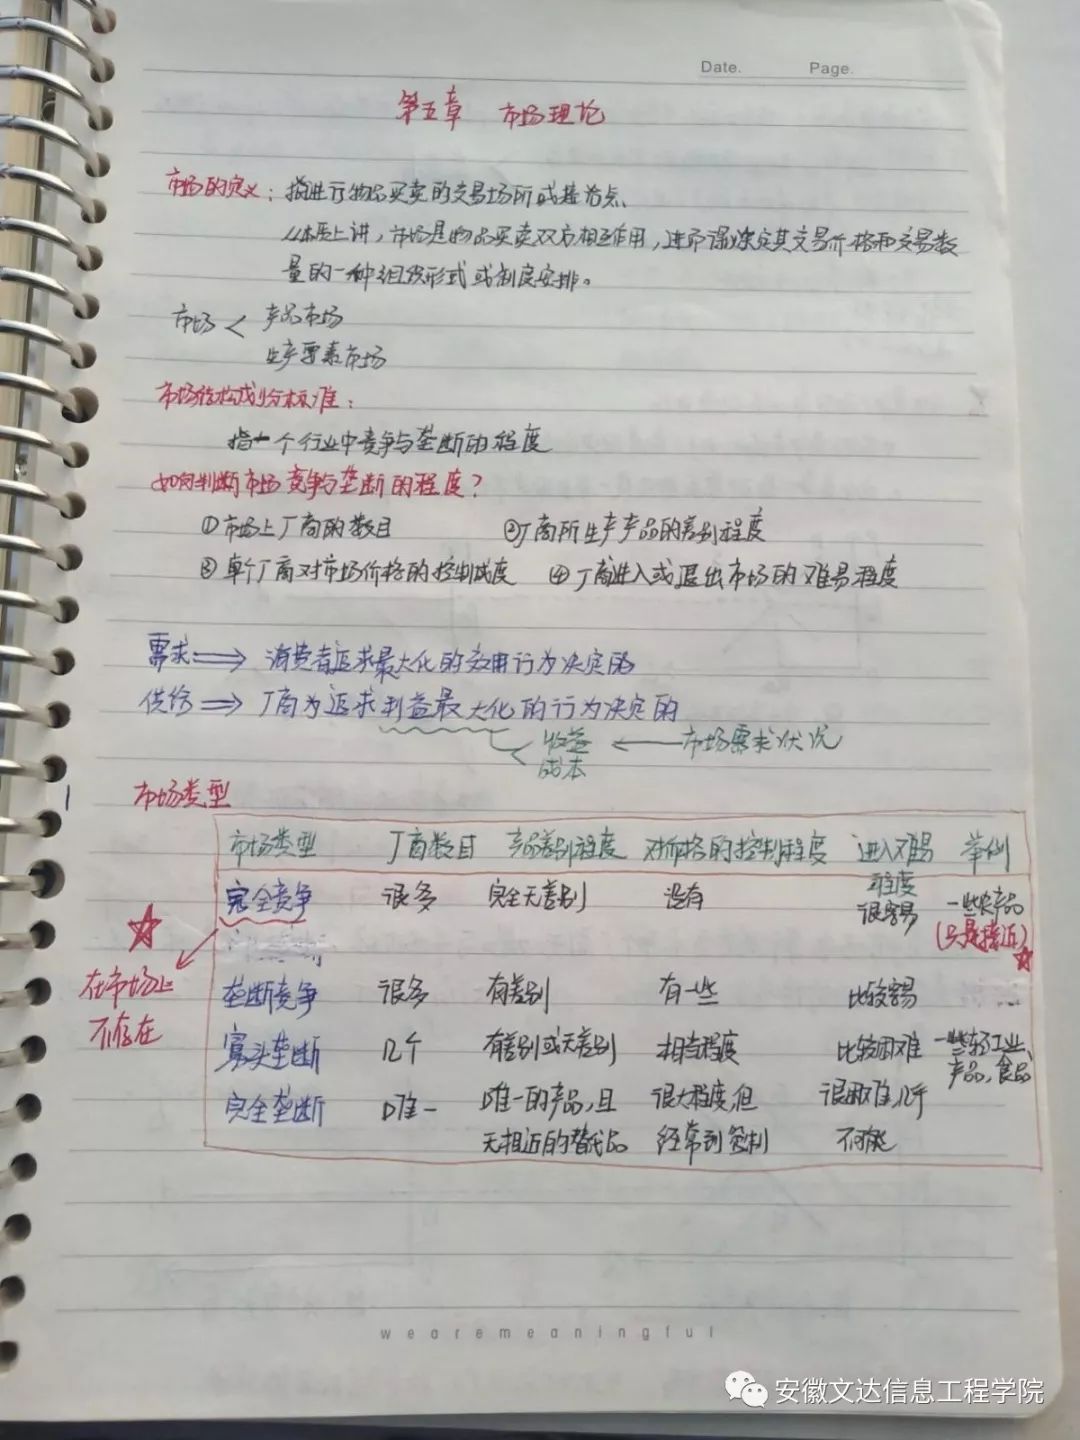 Date.    Page.
第五章 市场理论
市场的定义：指进行物品买卖的交易场所或接洽点、
从本质上讲，市场是物品买卖双方相互作用，进而决定其交易价格和交易数
量的一种组织形式或制度安排。
市场 < 产品市场
生产要素市场
市场结构划分标准：
指一个行业中竞争与垄断的程度
如何判断市场竞争与垄断的程度？
①市场上厂商的数目 ②厂商所生产产品的差别程度
③单个厂商对市场价格的控制程度 ④厂商进入或退出市场的难易程度
需求⟹消费者追求最大化的效用行为决定的
供给⟹厂商为追求利益最大化的行为决定的
收益 ← 市场需求状况
成本
市场类型
市场类型 厂商数目 产品差别程度 对价格的控制程度 进入难易程度 举例
完全竞争 很多 完全无差别 没有 很容易 一些农产品
(只是接近)
在市场上
不存在
垄断竞争 很多 有差别 有一些 比较容易
寡头垄断 几个 有差别或无差别 相当程度 比较困难 一些轻工业、
产品，食品
完全垄断 唯一 唯一的产品，且 很大程度，但 很困难，几乎
无相近的替代品 经常受到管制 不可能
wearemeaningful
安徽文达信息工程学院